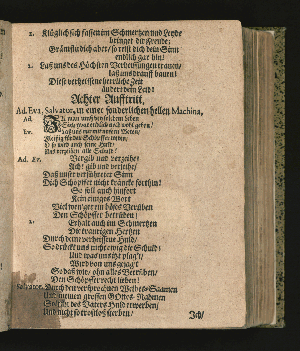 2. Klüglich sich fassen im Schmertzen und Leyde
bringet die Freude;
Grämst du dich aber/ so reist dich dein Sinn
endlich gar hin!
2. Laß uns des Höchsten Verheissungen trauen/
laß uns drauff bauen!
Diese verheissene herrliche Zeit
ändert dein Leid!
Achter Aufftritt,
Ad. Eva, Salvator, in einer sonderlichen hellen Machina,
Ad.
Ev. Laß uns nur mit unsern Beten/
für den Schöpffer treten/
so wird auch seine Huld/
Uns verzeihen alle Schuld!
Ad. Ev. Vergib und verzeihe/
Ach! gib und verleihe/
Daß unser verführeter Sinn
Dich Schöpffer nicht kräncke forthin!
So soll auch hinfort
Kein einiges Wort
Viel weniger ein böses Verüben
Den Schöpffer betrüben!
2. Erhalt auch im Schmertzen
Die traurigen Hertzen
Durch deine verheissene Huld/
So drückt uns nicht ewig die Schuld!
Und was uns itzt plagt/
Wird von uns gejagt
So daß wir/ ohn alles Betrüben/
Den Schöpffer recht lieben!
Salvator. Durch den versprochnen Weibes-Saamen
Und meinen grossen GOttes-Nahmen
Solt ihr des Vaters Huld erwerben/
Und nicht so trostloß sterben/
Ich/